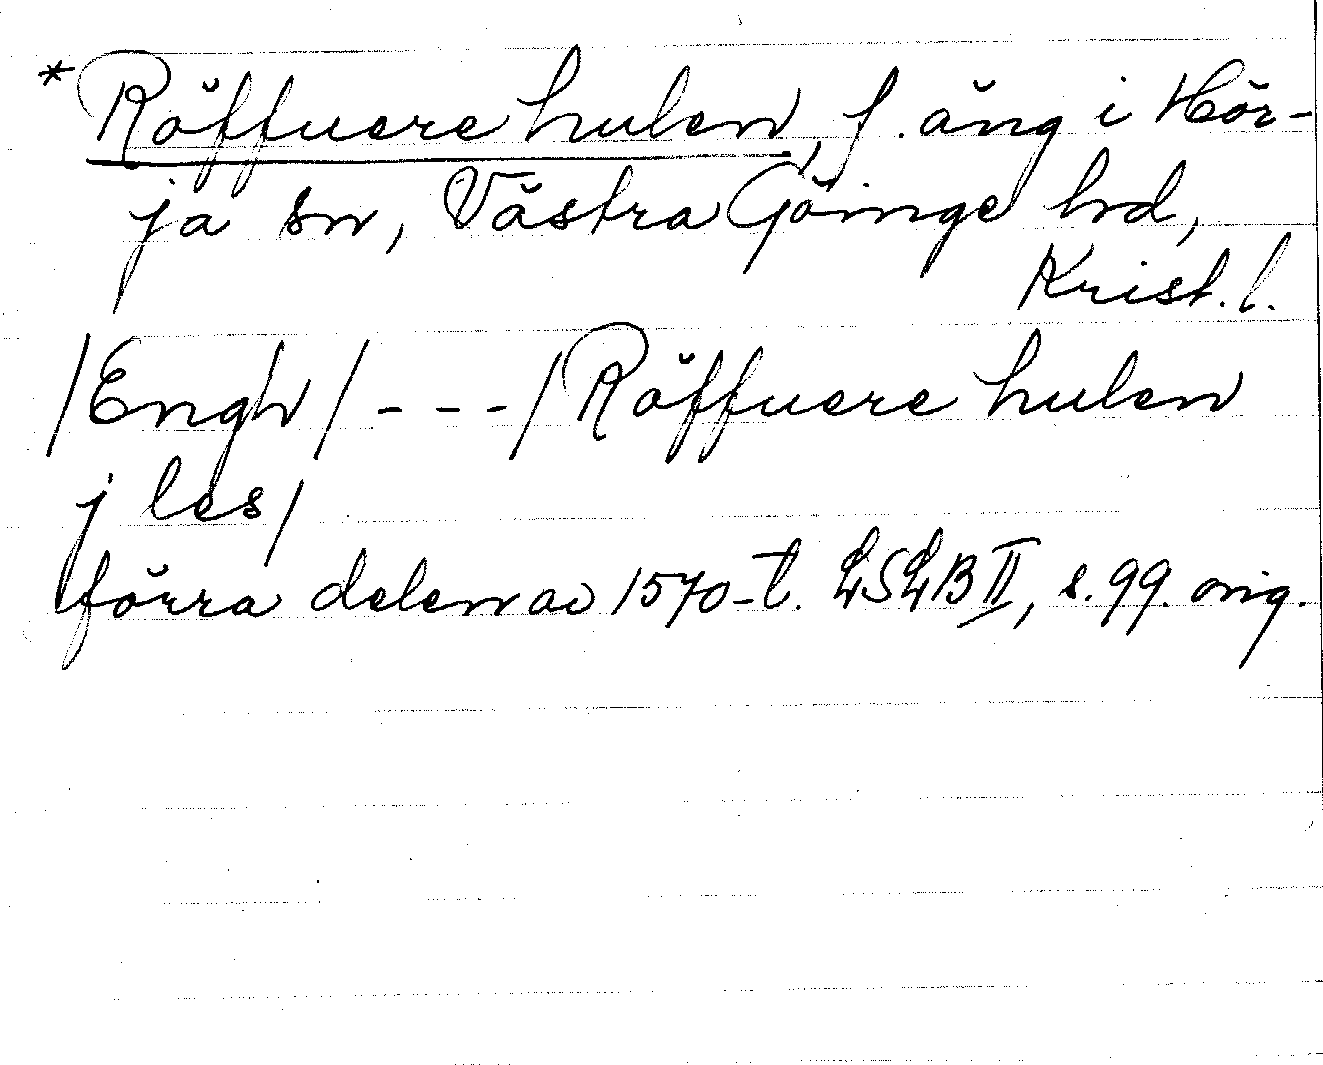 * Röffuere hulen, f. äng i Hör-
ja sn, Västra Göinge hd,
Krist. l.
/Engh/ - - -/Röffuere hulen
j les/
förra delen av 1570-t. LSLB II, s. 99. orig.